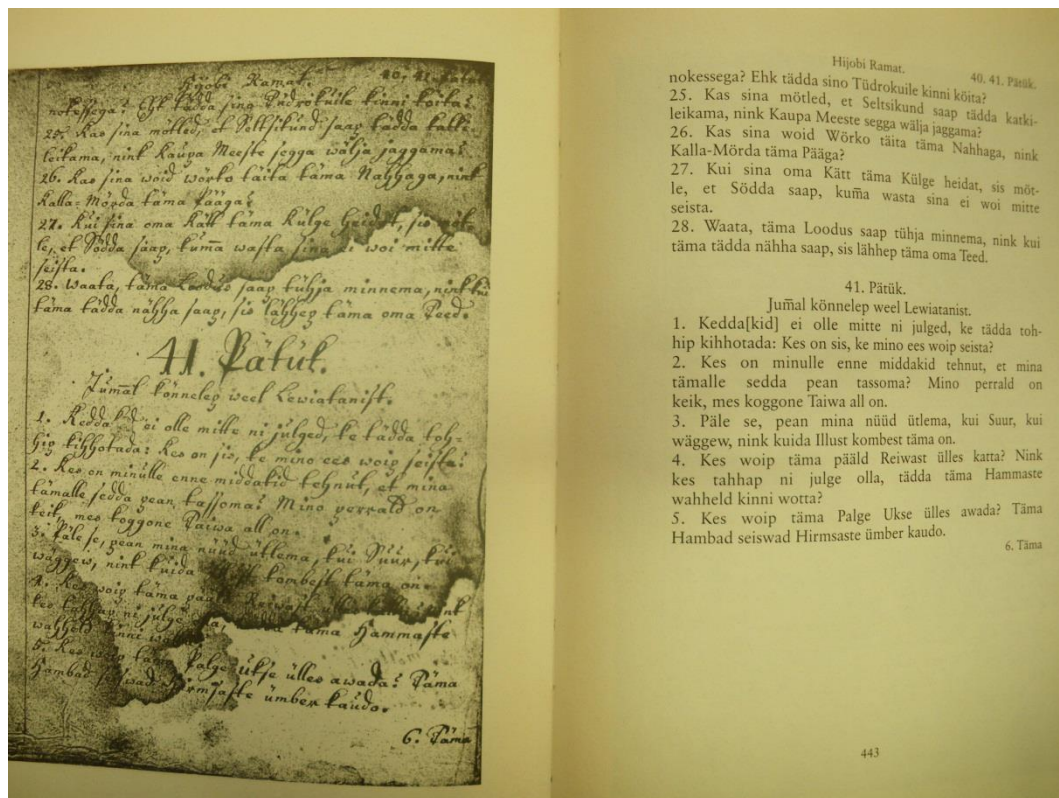 Hijobi Ramat. 40. 41. Pätük
nokessega? Ehk tädda sino Tüdrokuile kinni köita?
25. Kas sina mötled, et Seltsikund saap tädda katki-
leikama, nink Kaupa Meeste segga wälja jaggama?
26. Kas sina woid wörko täita täma Nahhaga, nink
Kalla-Mörda täma Pääga?
27. Kui sina oma Kätt täma Külge heidat, sis möt-
le, et Södda saap, kum̄a wasta sina ei woi mitte
seista.
28. Waata, täma Loodus saap tühja minnema, nink kui
täma tädda nähha saap, sis lähhep täma oma Teed.
41. Pätük.
Jum̄al könnelep weel Lewiatanist.
1. Kedda kid ei olle mitte ni julged, ke tädda toh-
hip kihhotada: Kes on sis, ke mino ees woip seista?
2. Kes on minulle enne middakid tehnut, et mina
tämalle sedda pean tassoma? Mino perrald on
keik, mes koggone Taiwa all on.
3. Päle se, pean mina nüüd ütlema, kui Suur, kui
wäggew, nink kuida kombest täma on.
4. Kes woip täma Reiwast ülles nink
kes tahhap ni julge täma Hammaste
wahheld kinni
5. Kes woip täma Palge Ukse ülles awada? Täma
Hambad ümber kaudo.
6. Täma
Hijobi Ramat. 40. 41. Pätük.
nokessega? Ehk tädda sino Tüdrokuile kinni köita?
25. Kas sina mötled, et Seltsikund saap tädda katki-
leikama, nink Kaupa Meeste segga wälja jaggama?
26. Kas sina woid Wörko täita täma Nahhaga, nink
Kalla-Mörda täma Pääga?
27. Kui sina oma Kätt täma Külge heidat, sis möt-
le, et Södda saap, kum̄a wasta sina ei woi mitte
seista.
28. Waata, täma Loodus saap tühja minnema, nink kui
täma tädda nähha saap, sis lähhep täma oma Teed.
41. Pätük.
Jum̄al könnelep weel Lewiatanist.
1. Kedda[kid] ei olle mitte ni julged, ke tädda toh-
hip kihhotada: Kes on sis, ke mino ees woip seista?
2. Kes on minulle enne middakid tehnut, et mina
tämalle sedda pean tassoma? Mino perrald on
keik, mes koggone Taiwa all on.
3. Päle se, pean mina nüüd ütlema, kui Suur, kui
wäggew, nink kuida Illust kombest täma on.
4. Kes woip täma pääld Reiwast ülles katta? Nink
kes tahhap ni julge olla, tädda täma Hammaste
wahheld kinni wotta?
5. Kes woip täma Palge Ukse ülles awada? Täma
Hambad seiswad Hirmsaste ümber kaudo.
6. Täma
443